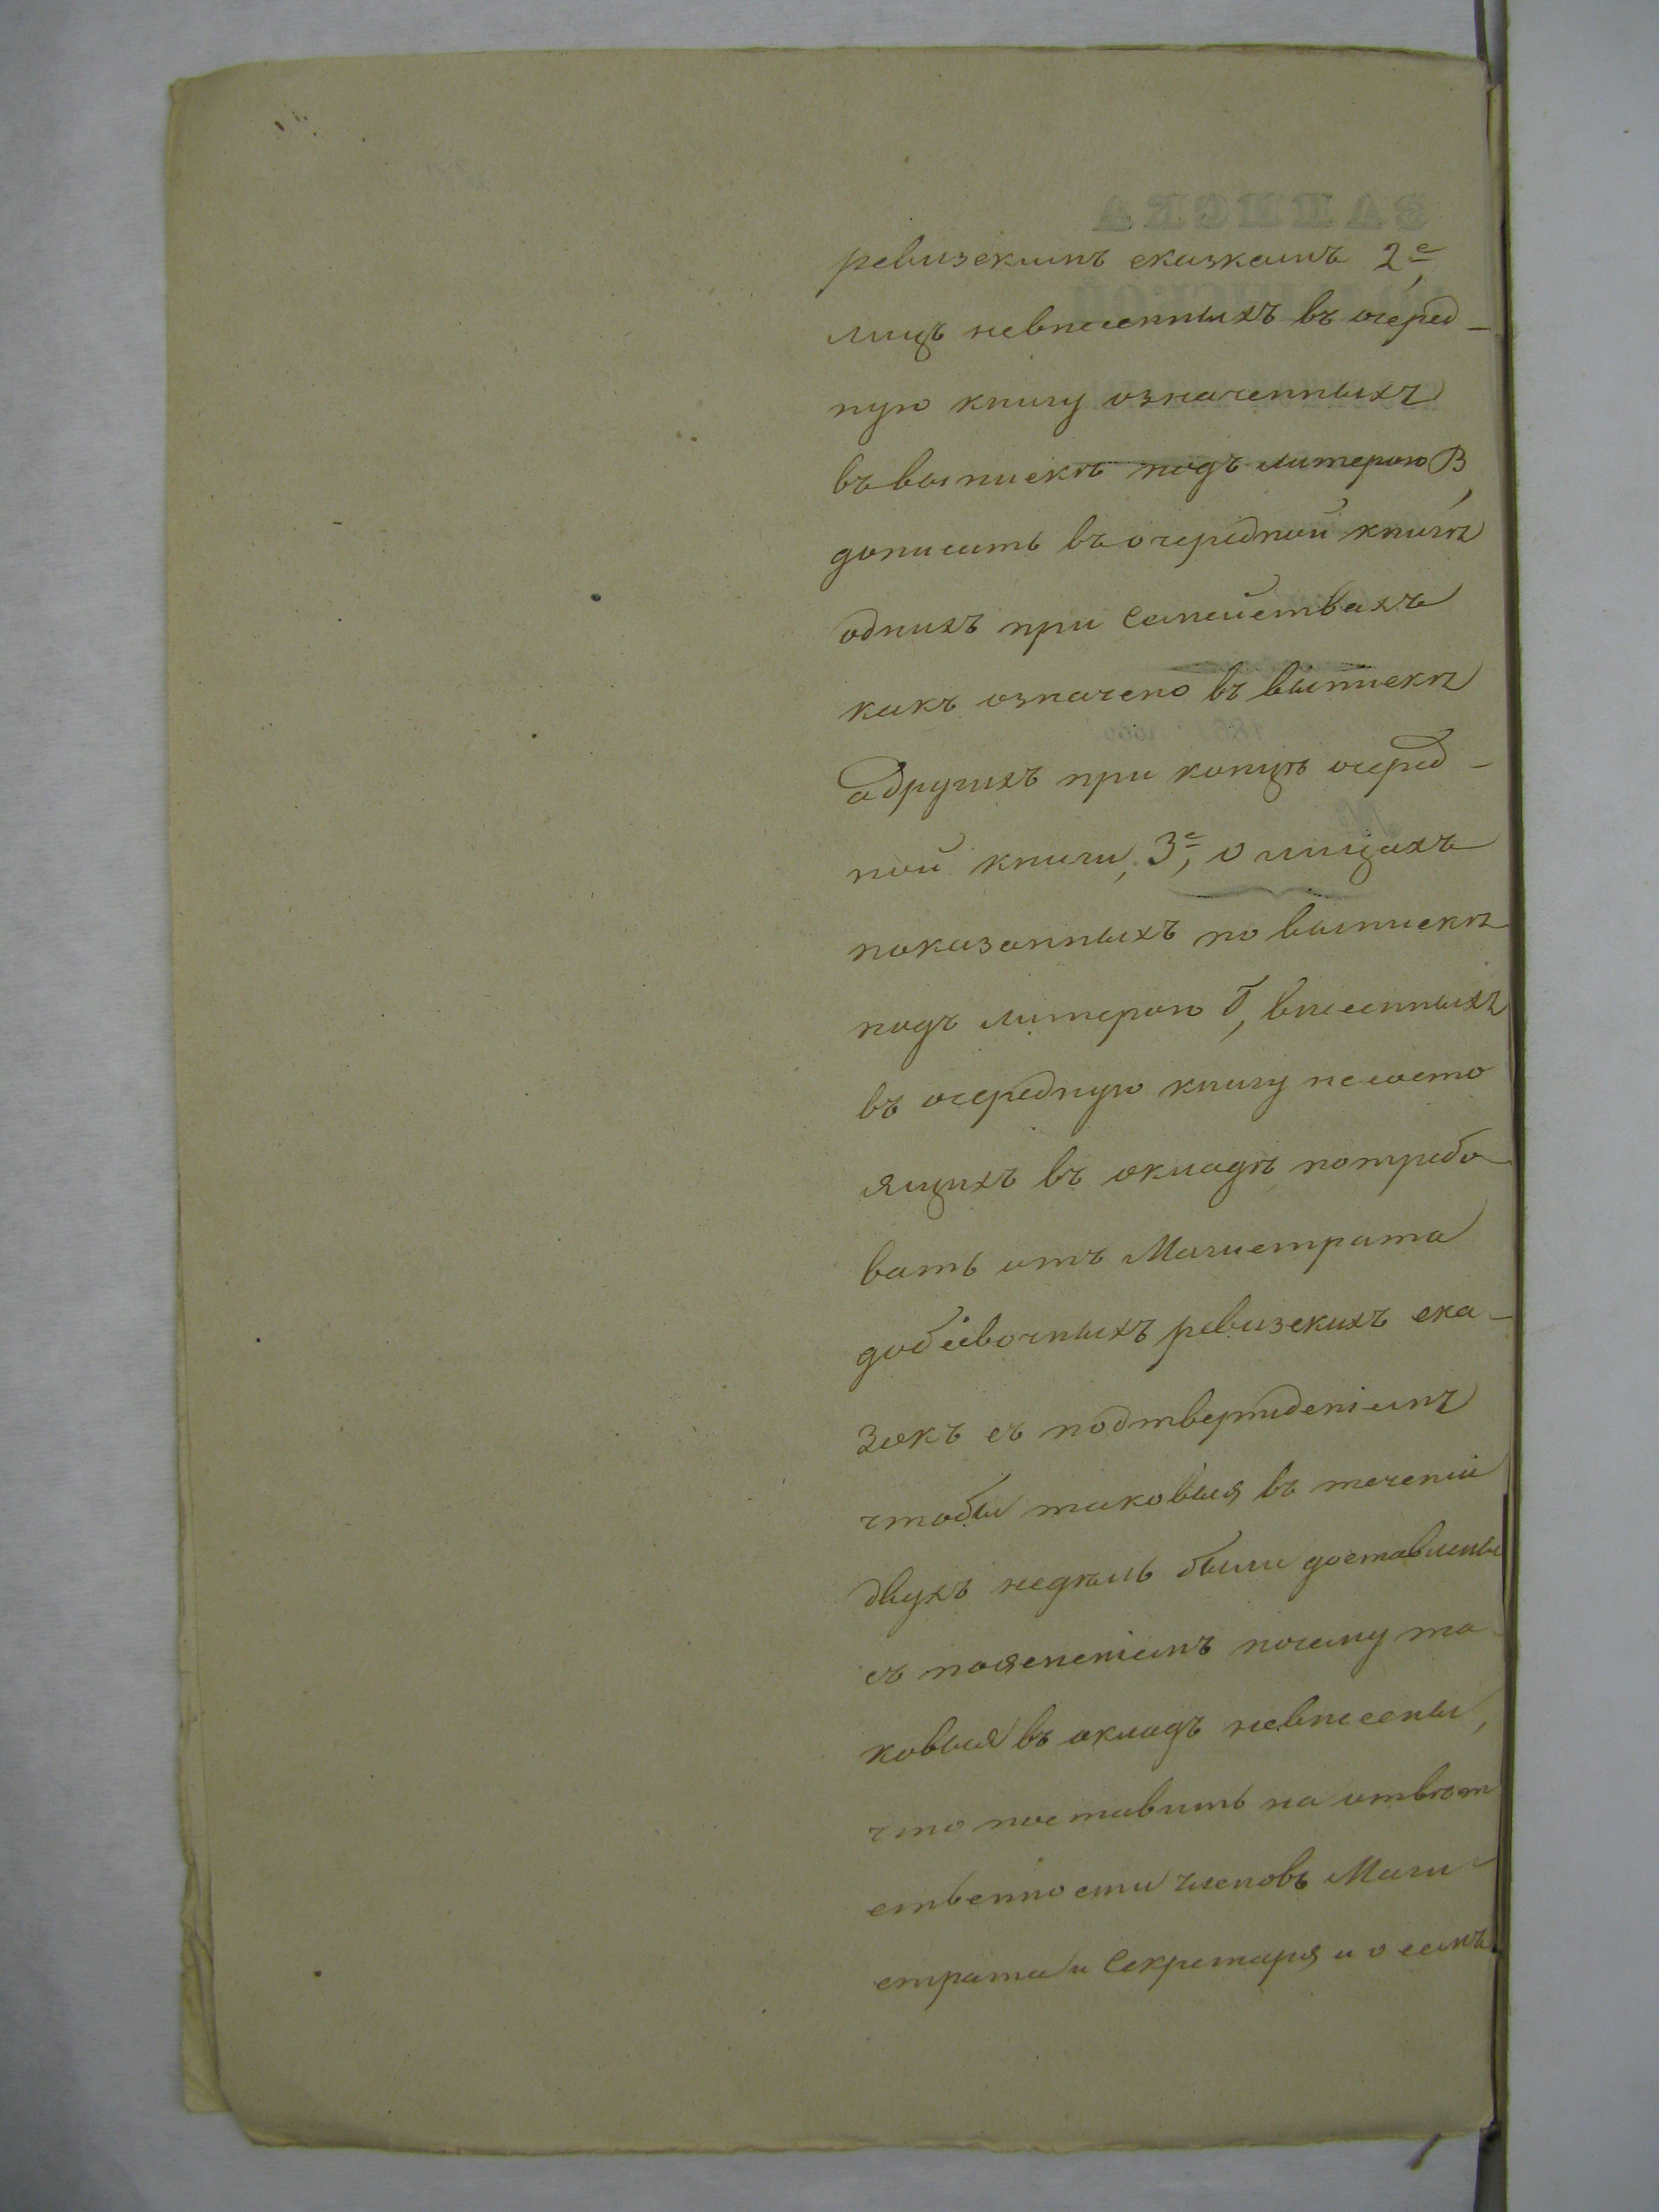 ревизскимъ сказкамъ 2е,
лицъ невнесенныхъ въ очеред-
ную книгу означенныхъ
въ выпискѣ подъ литерою В,
дописать въ очередной книгѣ
однихъ при Семействахъ
какъ означено въ выпискѣ
а другихъ при концѣ очеред-
ной книги, 3е, о лицахъ
показанныхъ по выпискѣ
подъ литерою б, внесенныхъ
въ очередную книгу несосто
ящихъ въ окладѣ потребо-
вать отъ Магистрата
добавочныхъ ревизскихъ ска-
зокъ съ подтвержденіемъ
чтобы таковыя въ теченіи
двухъ недѣль были доставлены
съ поясненіемъ почему та-
ковыя въ окладъ невнесены,
что поставить на отвѣт
ственности членовъ Маги-
страта и Секретаря и о семъ